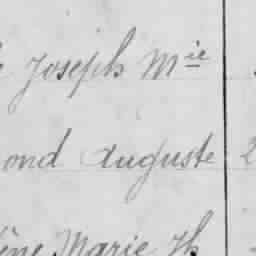 Joseph Mie
ond Auguste 2
ène Marie Th